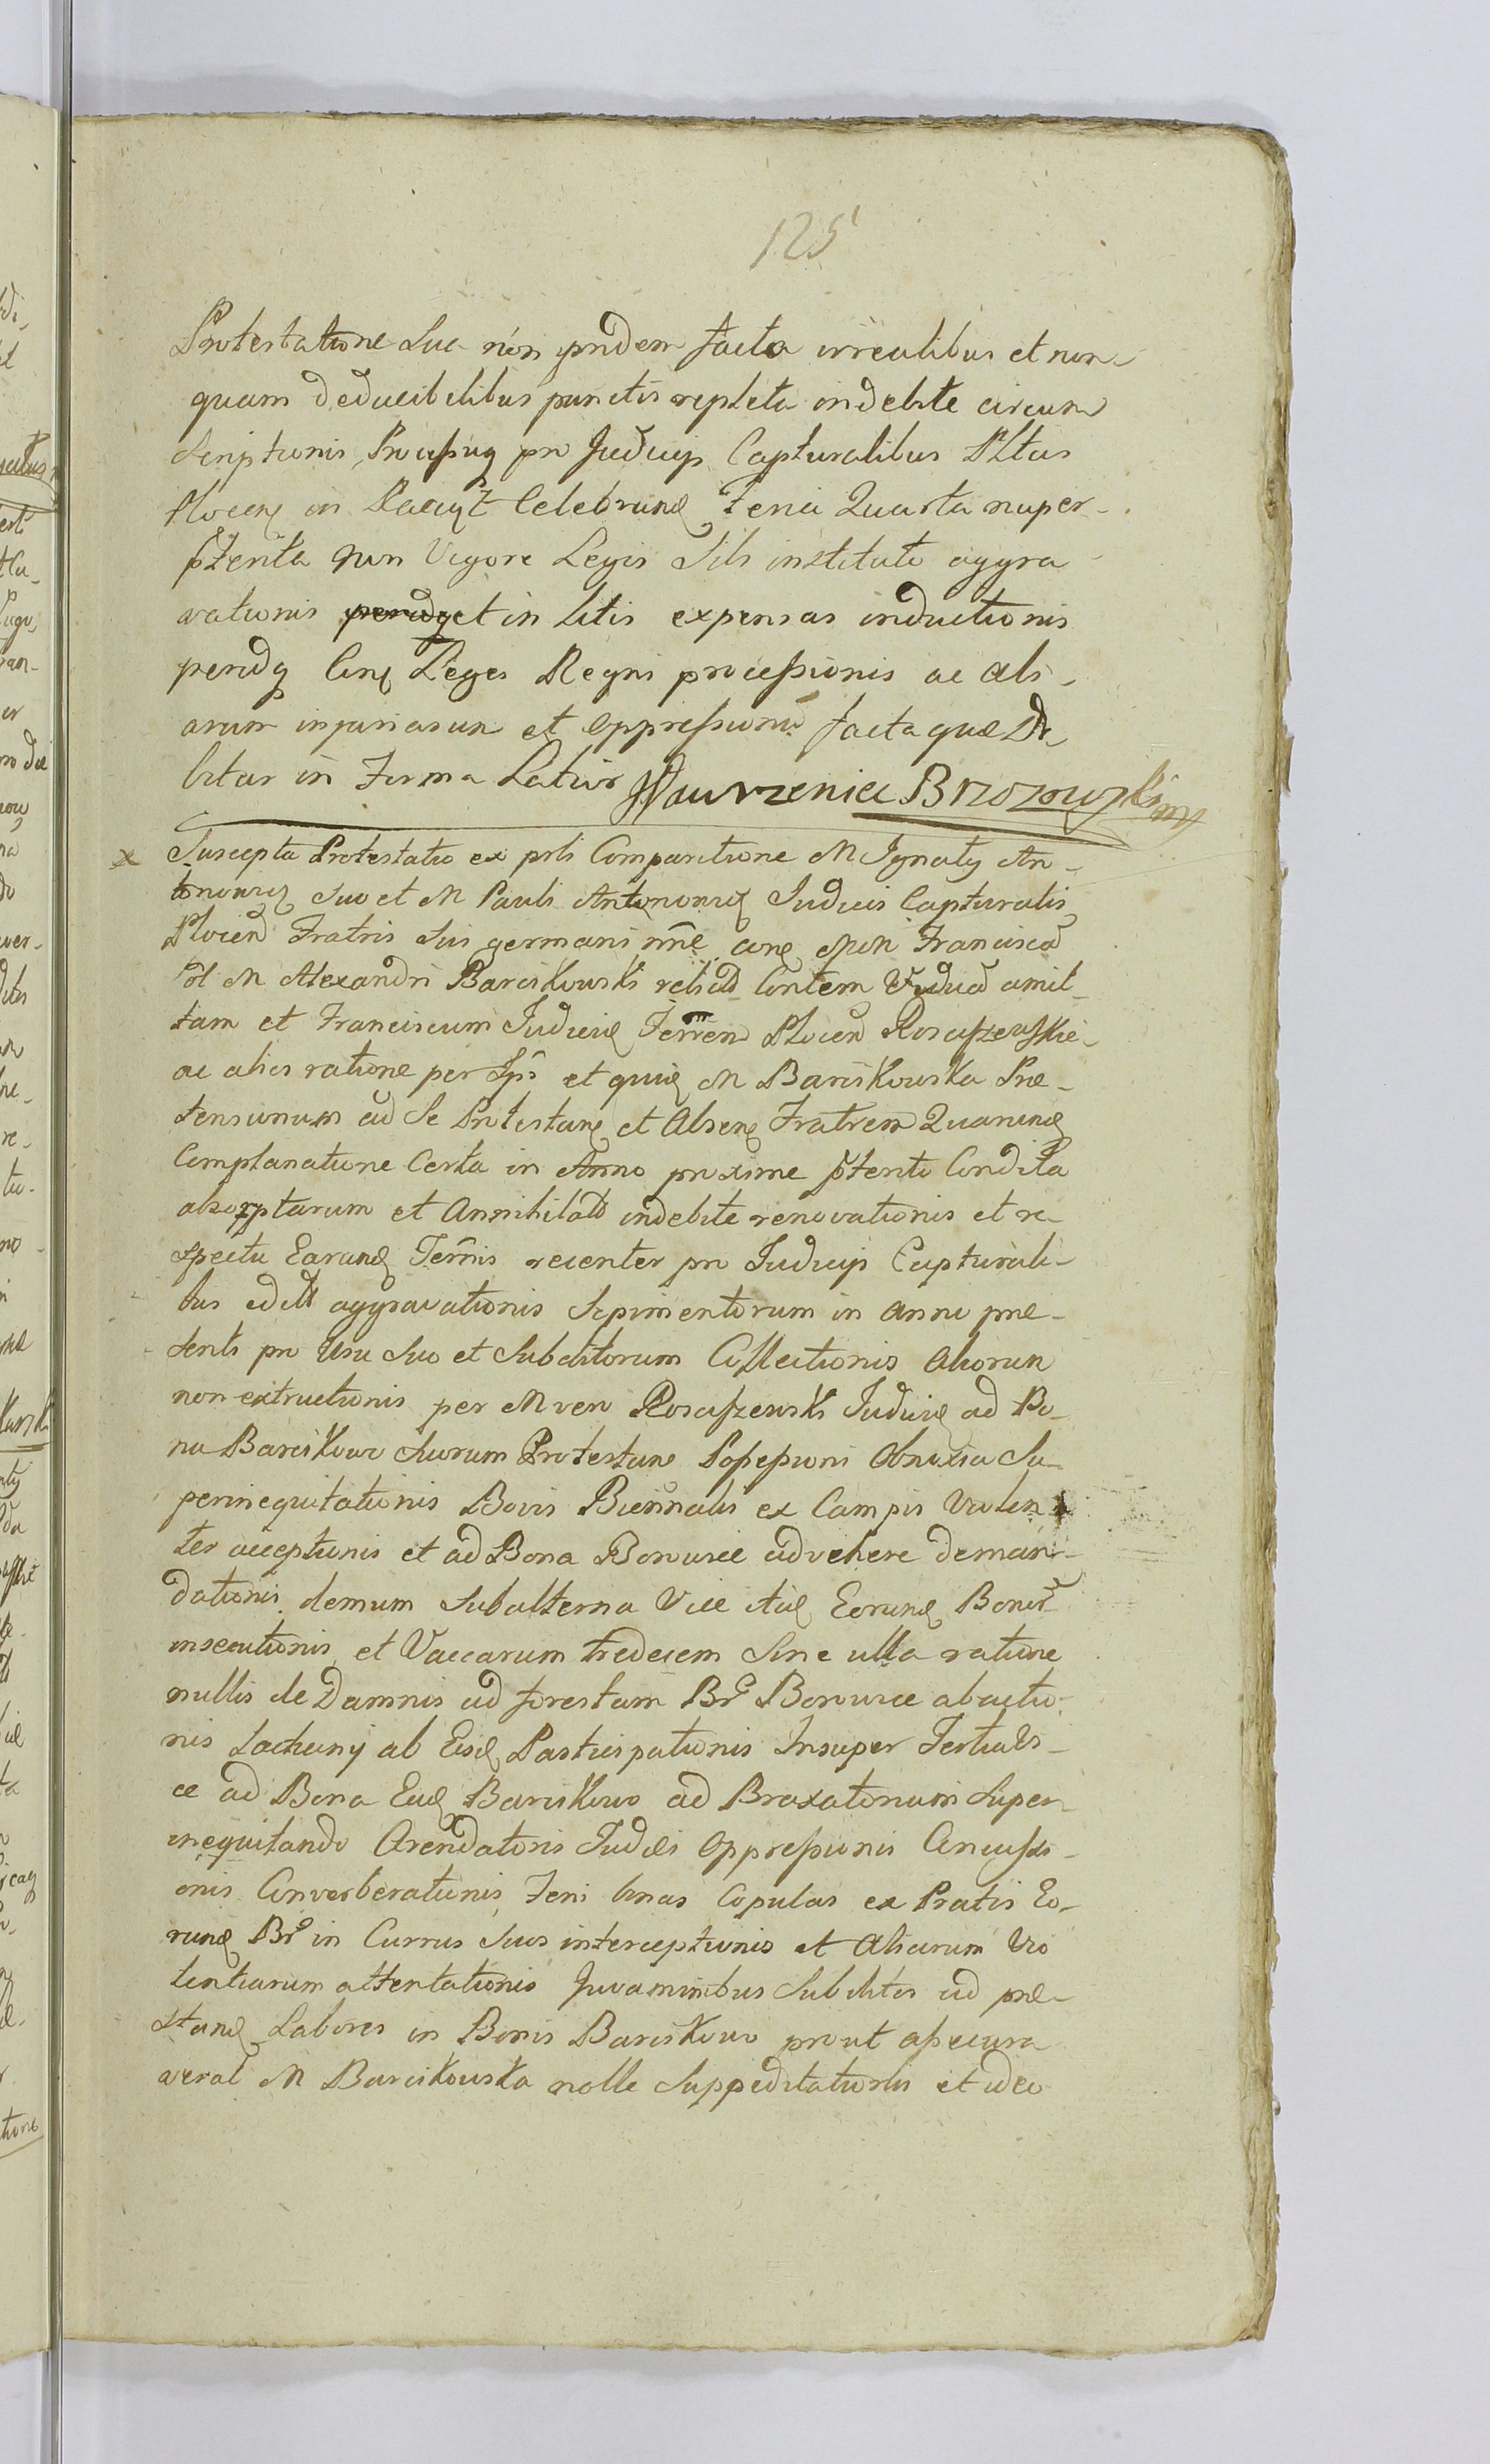 125
Protestatione Sua non pridem facta irrealibus et nun-
quam deducibilibus punctis repleta indebite circum
scriptionis, Processusq pro Judicijs Capturalibus Pltus
Plocen in Raciąż Celebrand Feria Quarta nuper
pterita non Vigore Legis Sibi instituti aggra
vationis et in litis expensas inductionis
pendq Cont Leges Regni processionis ac ali-
arum injuriarum et oppressionu facta quæ Da-
bitur in Forma Latiori Wawrzeniec Brzozowski mp
x Suscepta Protestatio ex prli Comparitione M Ignatij An-
tonowicz Suo et M Pauli Antonowicz Judicis Capturalis
Plocen Fratris Sui germani nne cona Mcm Francisca
ol M Alexandri Barcikowski relicta Contem Vidua amit-
tam et Franciscum Judicem Terren Plocen Rosciszewskie
ac alios ratione per Ips et quid M Barcikowska Præ-
tensionum ad Se Protestant et Absent Fratrem Quarund
Complanatione Certa in Anno proxime pterito Condita
absorptarum et Annihilatar indebite renovationis et re-
spectu Earund Termis recenter pro Judicijs Captural-
bus edit aggravationis Sepimentorum in anno præ-
senti pro Usu Suo et Subditorum Collectionis Aliorum
non extructionis per M ven Rosciszewski Judicem ad Bo-
na Barcikowo Suorum Protestant Possessioni Obnoxia Su-
perinequitationis Bovis Biennalis ex Campis Violen
ter acceptionis et ad Bona Borowice advehere deman-
dationis demum Subalterna Vice itid Eorund Bonor
insecutionis et Vaccarum tredecem Sine ulla ratione
nullis de Damnis ad forestam Br Borowice abactio-
nis Lacticinij ab Eisd Participationis Insuper Tertia Vi-
ce ad Bona Ead Barcikowo ad Braxatorium Super
inequitando Arendatoris Judei Oppressionis Concussi-
onis Converberationis, Feni binas Copulas ex Pratis Eo-
rund Br in Currus Suos interceptionis et Aliarum Vio
lentiarum attentationis Juvaminibus Subditis ad præ-
stand Labores in Bonis Barcikowo prout assecura
verat M Barcikowska nolle Suppeditationis et ideo